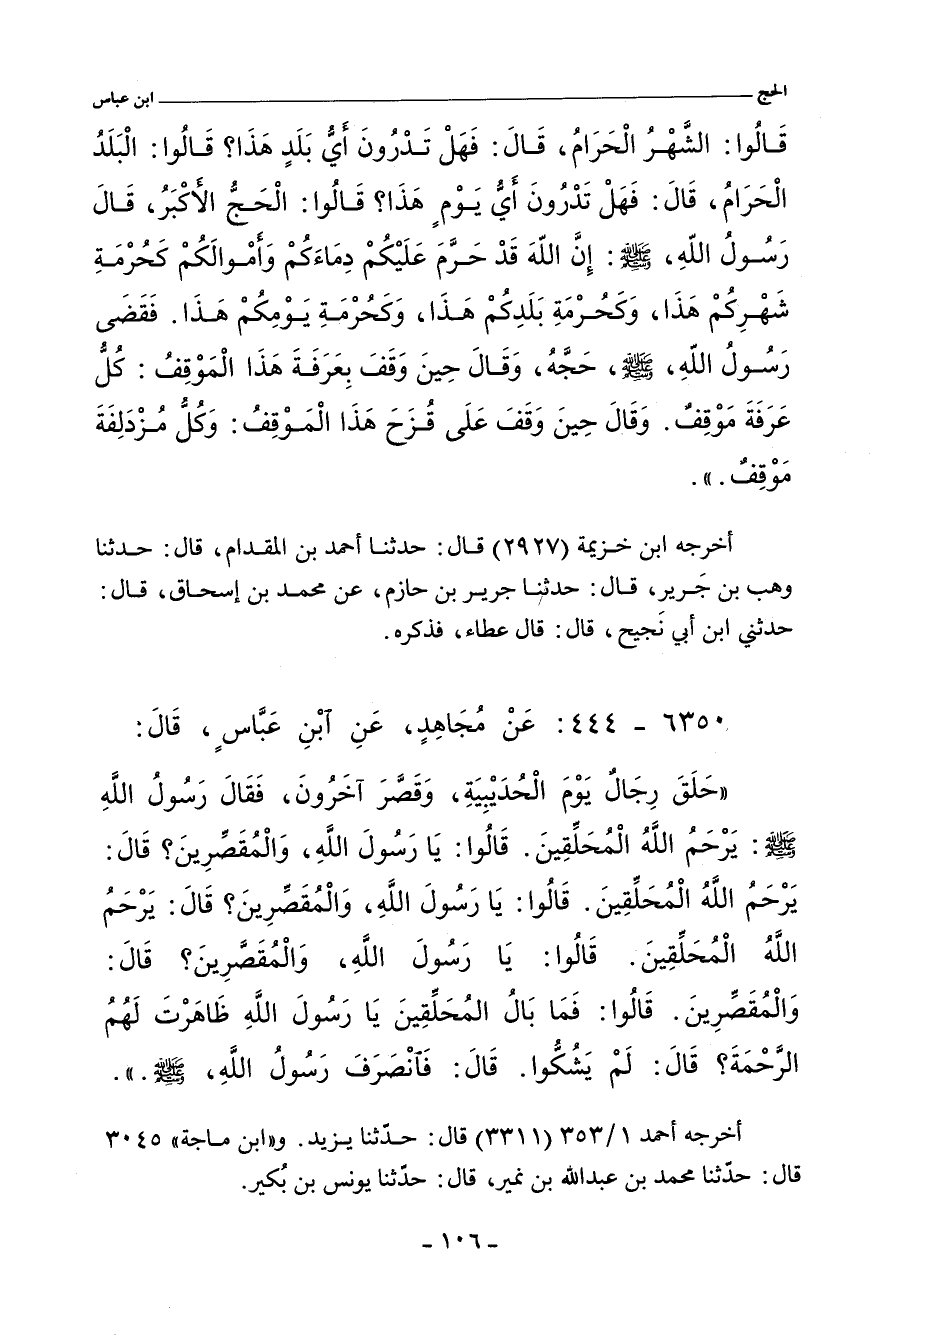 الحج ــــــ ابن عباس
قَالُوا: الشَّهْرُ الْحَرَامُ، قَالَ: فَهَلْ تَدْرُونَ أَيُّ بَلَدٍ هَذَا؟ قَالُوا: الْبَلَدُ
الْحَرَامُ، قَالَ: فَهَلْ تَدْرُونَ أَيُّ يَوْمٍ هَذَا؟ قَالُوا: الْحَجُّ الأَكْبَرُ، قَالَ
رَسُولُ اللّهِ، ﷺ: إِنَّ اللّهَ قَدْ حَرَّمَ عَلَيْكُمْ دِمَاءَكُمْ وَأَمْوالَكُمْ كَحُرْمَةِ
شَهْرِكُمْ هَذَا، وَكَحُرْمَةِ بَلَدِكُمْ هَذَا، وَكَحُرْمَةِ يَوْمِكُمْ هَذَا. فَقَضَى
رَسُولُ اللّهِ، ﷺ، حَجَّهُ، وَقَالَ حِينَ وَقَفَ بِعَرَفَةَ هَذَا الْمَوْقِفُ: كُلُّ
عَرَفَةَ مَوْقِفٌ. وَقَالَ حِينَ وَقَفَ عَلَى قُزَحَ هَذَا الْمَوْقِفُ: وَكُلُّ مُزْدَلِفَةَ
مَوْقِفٌ.».
أخرجه ابن خزيمة (٢٩٢٧) قال: حدثنا أحمد بن المقدام، قال: حدثنا
وهب بن جَرير، قال: حدثنا جرير بن حازم، عن محمد بن إسحاق، قال:
حدثني ابن أبي نَجيح، قال: قال عطاء، فذكره.
٦٣٥٠ - ٤٤٤: عَنْ مُجَاهِدٍ، عَنِ ٱبْنِ عَبَّاسٍ، قَالَ:
«حَلَقَ رِجَالٌ يَوْمَ الْحُدَيْبِيَةِ، وَقَصَّرَ آخَرُونَ، فَقَالَ رَسُولُ اللَّهِ
ﷺ: يَرْحَمُ اللَّهُ الْمُحَلِّقِينَ. قَالُوا: يَا رَسُولَ اللَّهِ، وَالْمُقَصِّرِينَ؟ قَالَ:
يَرْحَمُ اللَّهُ الْمُحَلِّقِينَ. قَالُوا: يَا رَسُولَ اللَّهِ، وَالْمُقَصِّرِينَ؟ قَالَ: يَرْحَمُ
اللَّهُ الْمُحَلِّقِينَ. قَالُوا: يَا رَسُولَ اللَّهِ، وَالْمُقَصَّرِينَ؟ قَالَ:
وَالْمُقَصِّرِينَ. قَالُوا: فَمَا بَالُ الْمُحَلِّقِينَ يَا رَسُولَ اللَّهِ ظَاهَرْتَ لَهُمُ
الرَّحْمَةَ؟ قَالَ: لَمْ يَشُكُّوا. قَالَ: فَٱنْصَرَفَ رَسُولُ اللَّهِ، ﷺ.».
أخرجه أحمد ٣٥٣/١ (٣٣١١) قال: حدّثنا يزيد. و«ابن ماجة» ٣٠٤٥
قال: حدّثنا محمد بن عبدالله بن نمير، قال: حدّثنا يونس بن بُكير.
- ١٠٦ -